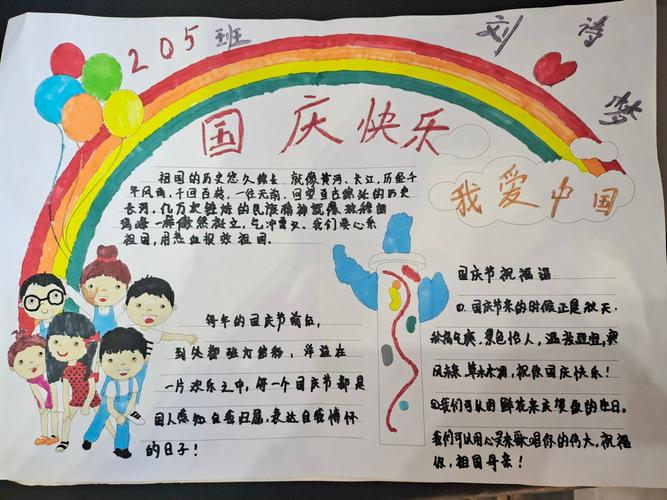 205班
刘诗梦
国庆快乐
祖国的历史悠久绵长 就像黄河、长江,历经千
年风雨,千回百转,一往无前,回望亘古绵延的历史
长河,亿万
的民族精神就像
傲然挺立,气冲霄汉。我们要心系
祖国,用热血报效祖国。
我爱中国
每年的国庆节前后,
到处都张灯结彩,洋溢在
一片欢乐之中,每一个国庆节都是
国人感知自我归属,表达自我情怀
的日子!
国庆节祝福语
①.国庆节来的时候正是秋天,
秋高气爽,景色怡人,
祝你国庆快乐!
②我们可以用鲜花来庆贺你的生日。
我们可以用心灵来歌唱你的伟大,祝福
你,祖国母亲!